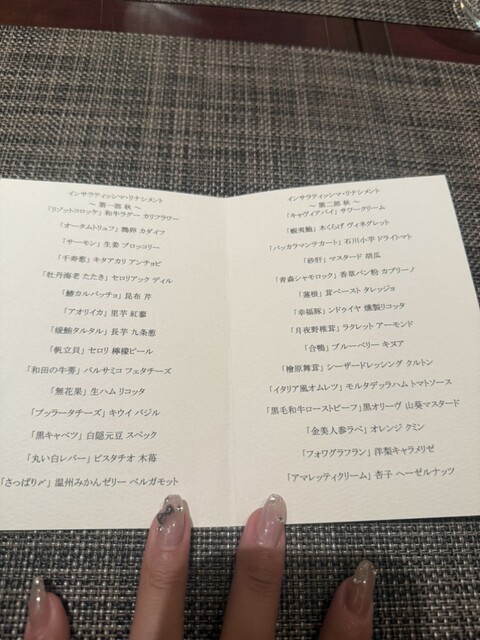 インサラティッシマ・リナシメント
～ 第一部 秋 ～
「リゾットコロッケ」 和牛ラグー カリフラワー
「オータムトリュフ」 鶏卵 カダイフ
「サーモン」 生姜 ブロッコリー
「千寿葱」 キタアカリ アンチョビ
「牡丹海老 たたき」 セロリアック ディル
「鰆カルパッチョ」 昆布 芹
「アオリイカ」 里芋 紅蓼
「鮪タルタル」 長芋 九条葱
「帆立貝」 セロリ 檸檬ピール
「和田の牛蒡」 バルサミコ フェタチーズ
「無花果」 生ハム リコッタ
「ブッラータチーズ」 キウイ バジル
「黒キャベツ」 白隠元豆 スペック
「丸い白レバー」 ピスタチオ 木苺
「さっぱり〆」 温州みかんゼリー ベルガモット
インサラティッシマ・リナシメント
～ 第二部 秋 ～
「キャヴィアパイ」 サワークリーム
「蝦夷鮑」 木くらげ ヴィネグレット
「バッカラマンテカート」 石川小芋 ドライトマト
「砂肝」 マスタード 胡瓜
「青森シャモロック」 香草パン粉 カプリーノ
「蓮根」 茸ペースト タレッジョ
「幸福豚」 ンドゥイヤ 燻製リコッタ
「月夜野椎茸」 ラクレット アーモンド
「合鴨」 ブルーベリー キヌア
「檜原舞茸」 シーザードレッシング クルトン
「イタリア風オムレツ」 モルタデッラハム トマトソース
「黒毛和牛ローストビーフ」 黒オリーヴ 山葵マスタード
「金美人参ラペ」 オレンジ クミン
「フォワグラフラン」 洋梨キャラメリゼ
「アマレッティクリーム」 杏子 ヘーゼルナッツ